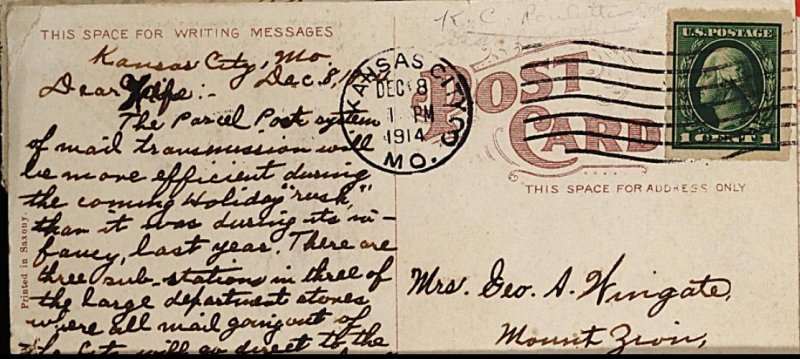 K.C.
THIS SPACE FOR WRITING MESSAGES
Kansas City, Mo.
Dec. 8,
Dear Wife:-
The Parcel Post system
of mail transmission will
be more efficient during
the coming Holiday "rush,"
than it was during its in-
fancy, last year. There are
three sub-stations in three of
the large department stores
where all mail going out of
the City will go direct to the
Printed in Saxony.
KANSAS CITY
DEC 8
1 PM
1914
MO.
POST
CARD
U.S. POSTAGE
1 CENT 1
THIS SPACE FOR ADDRESS ONLY
Mrs. Geo. A. Wingate,
Mount Zion,